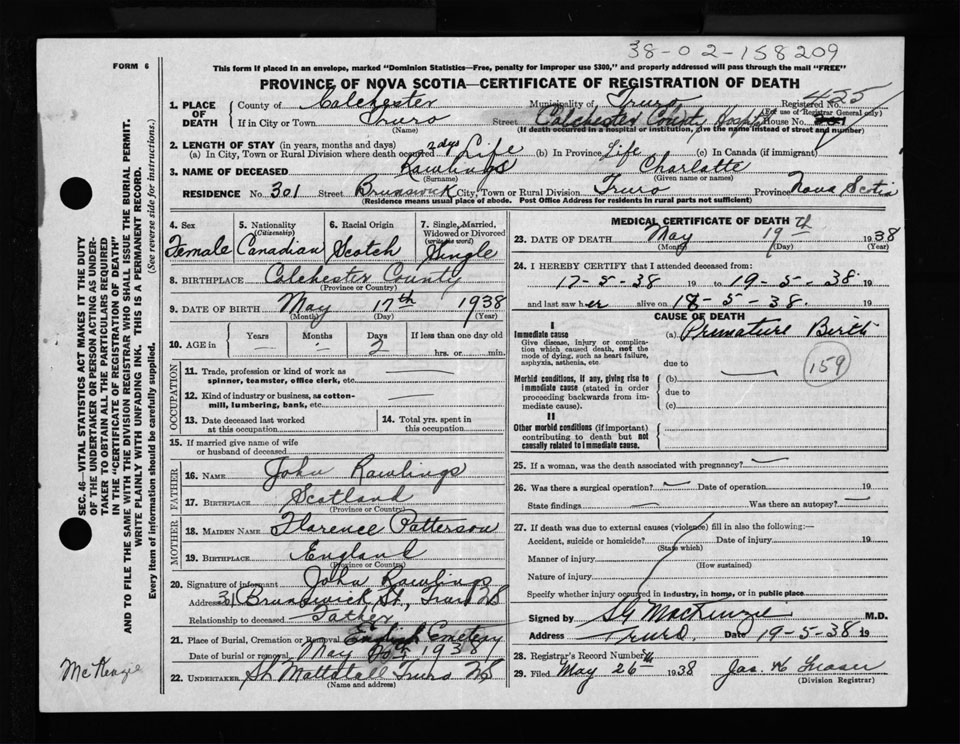 38-02-158209
FORM 6
This form if placed in an envelope, marked "Dominion Statistics—Free, penalty for improper use $300," and properly addressed will pass through the mail "FREE"
PROVINCE OF NOVA SCOTIA—CERTIFICATE OF REGISTRATION OF DEATH
1. PLACE OF DEATH County of Colchester Municipality of Truro Registered No. 425
(For use of Registrar General only)
If in City or Town Truro Street Colchester County Hospital House No.
(Name) (If death occurred in a hospital or institution, give the name instead of street and number)
2. LENGTH OF STAY (in years, months and days)
(a) In City, Town or Rural Division where death occurred 2 dys Life (b) In Province Life (c) In Canada (if immigrant)
3. NAME OF DECEASED Rawlings Charlotte
(Surname) (Given name or names)
RESIDENCE No. 301 Street Brunswick City, Town or Rural Division Truro Province Nova Scotia
(Residence means usual place of abode. Post Office Address for residents in rural parts not sufficient)
4. Sex 5. Nationality (Citizenship) 6. Racial Origin 7. Single, Married, Widowed or Divorced (write the word)
Female Canadian Scotch Single
8. BIRTHPLACE Colchester County
(Province or Country)
9. DATE OF BIRTH May 17th 1938
(Month) (Day) (Year)
10. AGE in Years Months Days If less than one day old
— — 2 hrs. or min.
OCCUPATION
11. Trade, profession or kind of work as spinner, teamster, office clerk, etc. —
12. Kind of industry or business, as cotton-mill, lumbering, bank, etc. —
13. Date deceased last worked at this occupation
14. Total yrs. spent in this occupation
15. If married give name of wife or husband of deceased
FATHER
16. NAME John Rawlings
17. BIRTHPLACE Scotland
(Province or Country)
MOTHER
18. MAIDEN NAME Florence Patterson
19. BIRTHPLACE England
(Province or Country)
20. Signature of informant John Rawlings
Address 301 Brunswick St., Truro NS
Relationship to deceased Father
21. Place of Burial, Cremation or Removal English Cemetery
Date of burial or removal May 20th 1938
22. UNDERTAKER Truro NS
(Name and address)
MEDICAL CERTIFICATE OF DEATH
23. DATE OF DEATH May 19th 1938
(Month) (Day) (Year)
24. I HEREBY CERTIFY that I attended deceased from:
17-5-38 19 to 19-5-38. 19
and last saw her alive on 18-5-38. 19
CAUSE OF DEATH
I
Immediate cause (a) Premature Birth
Give disease, injury or complication which caused death, not the mode of dying, such as heart failure, asphyxia, asthenia, etc.
due to
159
Morbid conditions, if any, giving rise to immediate cause (stated in order proceeding backwards from immediate cause).
(b) —
due to
(c)
II
Other morbid conditions (if important) contributing to death but not causally related to immediate cause.
25. If a woman, was the death associated with pregnancy? —
26. Was there a surgical operation? — Date of operation 19
State findings — Was there an autopsy? —
27. If death was due to external causes (violence) fill in also the following:—
Accident, suicide or homicide? Date of injury 19
(State which)
Manner of injury
(How sustained)
Nature of injury
Specify whether injury occurred in industry, in home, or in public place
Signed by S G MacKenzie M.D.
Address Truro. Date 19-5-38 19
28. Registrar's Record Number
29. Filed May 26th 1938 Jas. H Fraser
(Division Registrar)
SEC. 46—VITAL STATISTICS ACT MAKES IT THE DUTY
OF THE UNDERTAKER OR PERSON ACTING AS UNDER-
TAKER TO OBTAIN ALL THE PARTICULARS REQUIRED
IN THE "CERTIFICATE OF REGISTRATION OF DEATH"
AND TO FILE THE SAME WITH THE DIVISION REGISTRAR WHO SHALL ISSUE THE BURIAL PERMIT.
WRITE PLAINLY WITH UNFADING INK. THIS IS A PERMANENT RECORD.
Every item of information should be carefully supplied. (See reverse side for instructions.)
McKenzie